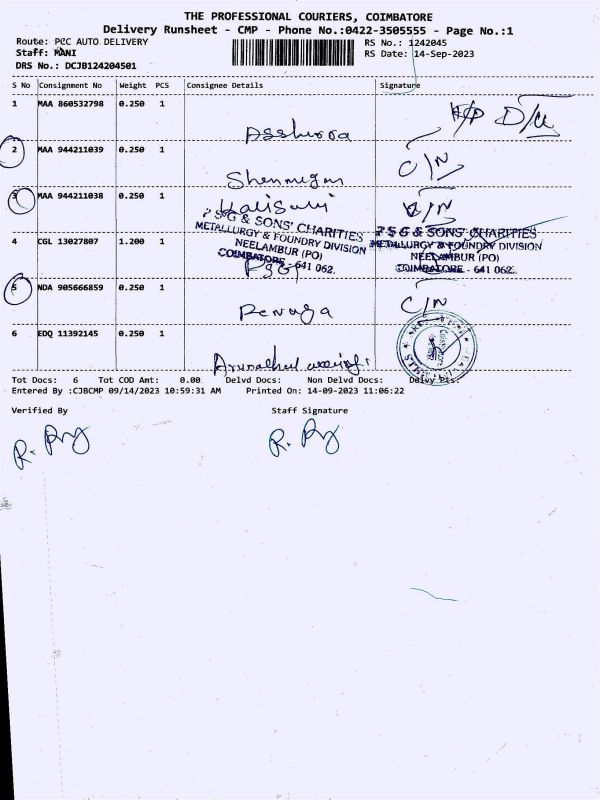 THE PROFESSIONAL COURIERS, COIMBATORE
Delivery Runsheet - CMP - Phone No.:0422-3505555 - Page No.:1
Route: PCC AUTO DELIVERY RS No.: 1242045
Staff: MANI RS Date: 14-Sep-2023
DRS No.: DCJB124204501
S No Consignment No Weight PCS Consignee Details Signature
1 MAA 860532798 0.250 1
2 MAA 944211039 0.250 1
Shenmugam C/N
3 MAA 944211038 0.250 1
PSG & SONS' CHARITIES PSG & SONS' CHARITIES
METALLURGY & FOUNDRY DIVISION METALLURGY & FOUNDRY DIVISION
4 CGL 13027807 1.200 1
NEELAMBUR (PO) NEELAMBUR (PO)
COIMBATORE - 641 062. COIMBATORE - 641 062.
5 NDA 905666859 0.250 1
C/N
6 EDQ 11392145 0.250 1
Tot Docs: 6 Tot COD Amt: 0.00 Delvd Docs: Non Delvd Docs: Delvy Pts:
Entered By :CJBCMP 09/14/2023 10:59:31 AM Printed On: 14-09-2023 11:06:22
Verified By Staff Signature